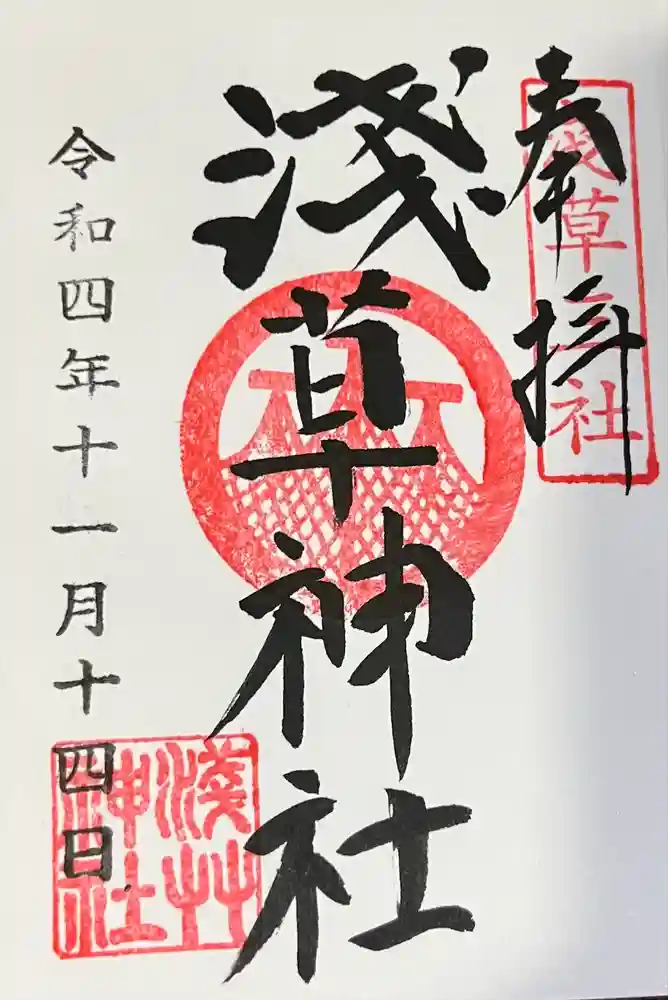 奉拝
浅草三社
淺草神社
令和四年十一月十四日
淺草神社